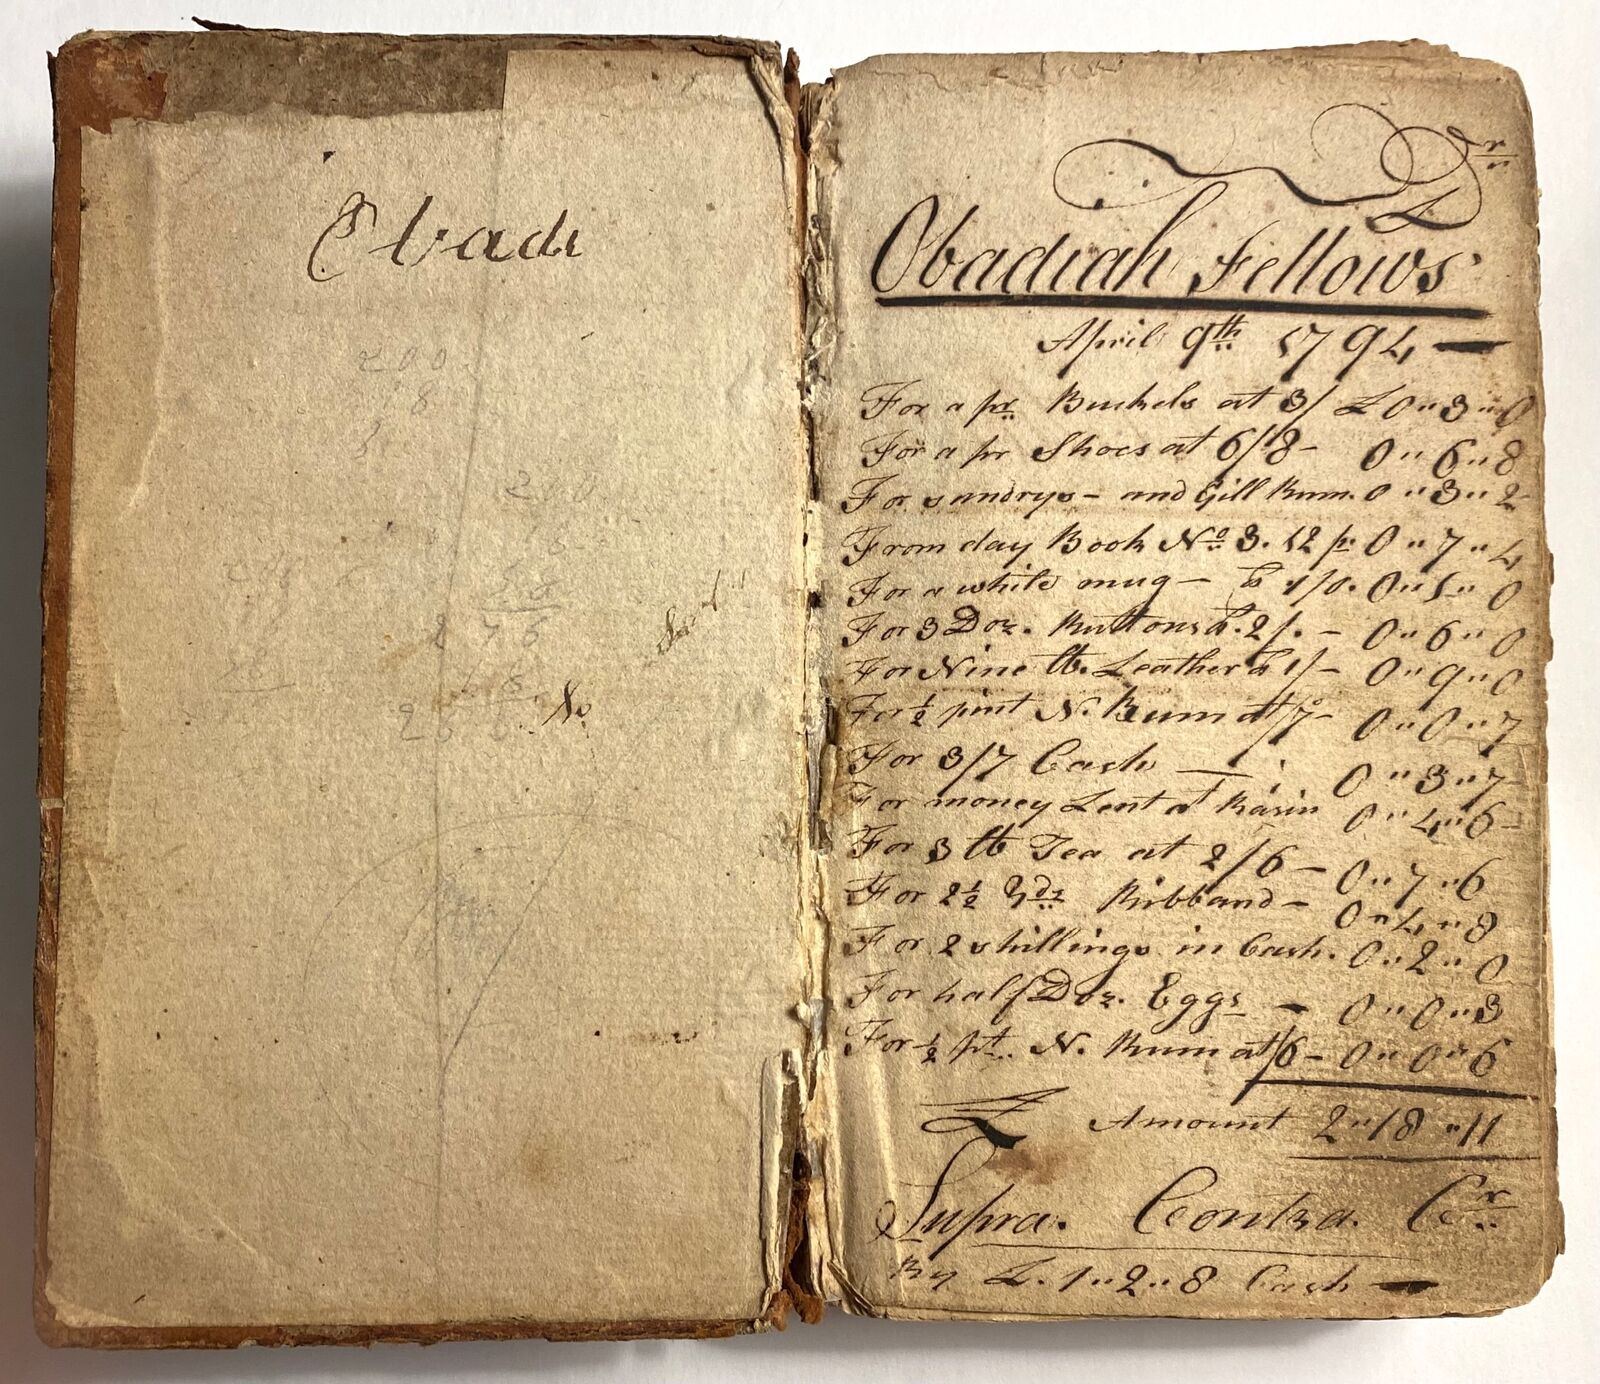 Obadi
200
18
200
276
18
No
Dr
Obadiah Fellows
April 9th 1794 —
For a pr Buckels at 3/ £ 0 " 3 " 0
For a pr Shoes at 6/8 - 0 " 6 " 8
For sandrys - and Gill Rum. 0 " 3 " 2
From day Book No 3. 12 pr 0 " 7 " 4
For a white mug - 1/0. 0 " 1 " 0
For 3 Doz. Buttons 2/. - 0 " 6 " 0
For Nine lb. Leather 1/- 0 " 9 " 0
For ½ pint N. Rum at /7 - 0 " 0 " 7
For 3/7 Cash — 0 " 3 " 7
For money Lent at 0 " 4 " 6
For 3 lb Tea at 2/6 - 0 " 7 " 6
For 2½ Yds Ribband - 0 " 4 " 8
For 2 shillings in Cash. 0 " 2 " 0
For half Doz. Eggs - 0 " 0 " 3
For ½ pt. N. Rum at /6 - 0 " 0 " 6
£ Amount 2 " 18 " 11
Supra. Contra. Cr
By £. 1 " 2 " 8 Cash —